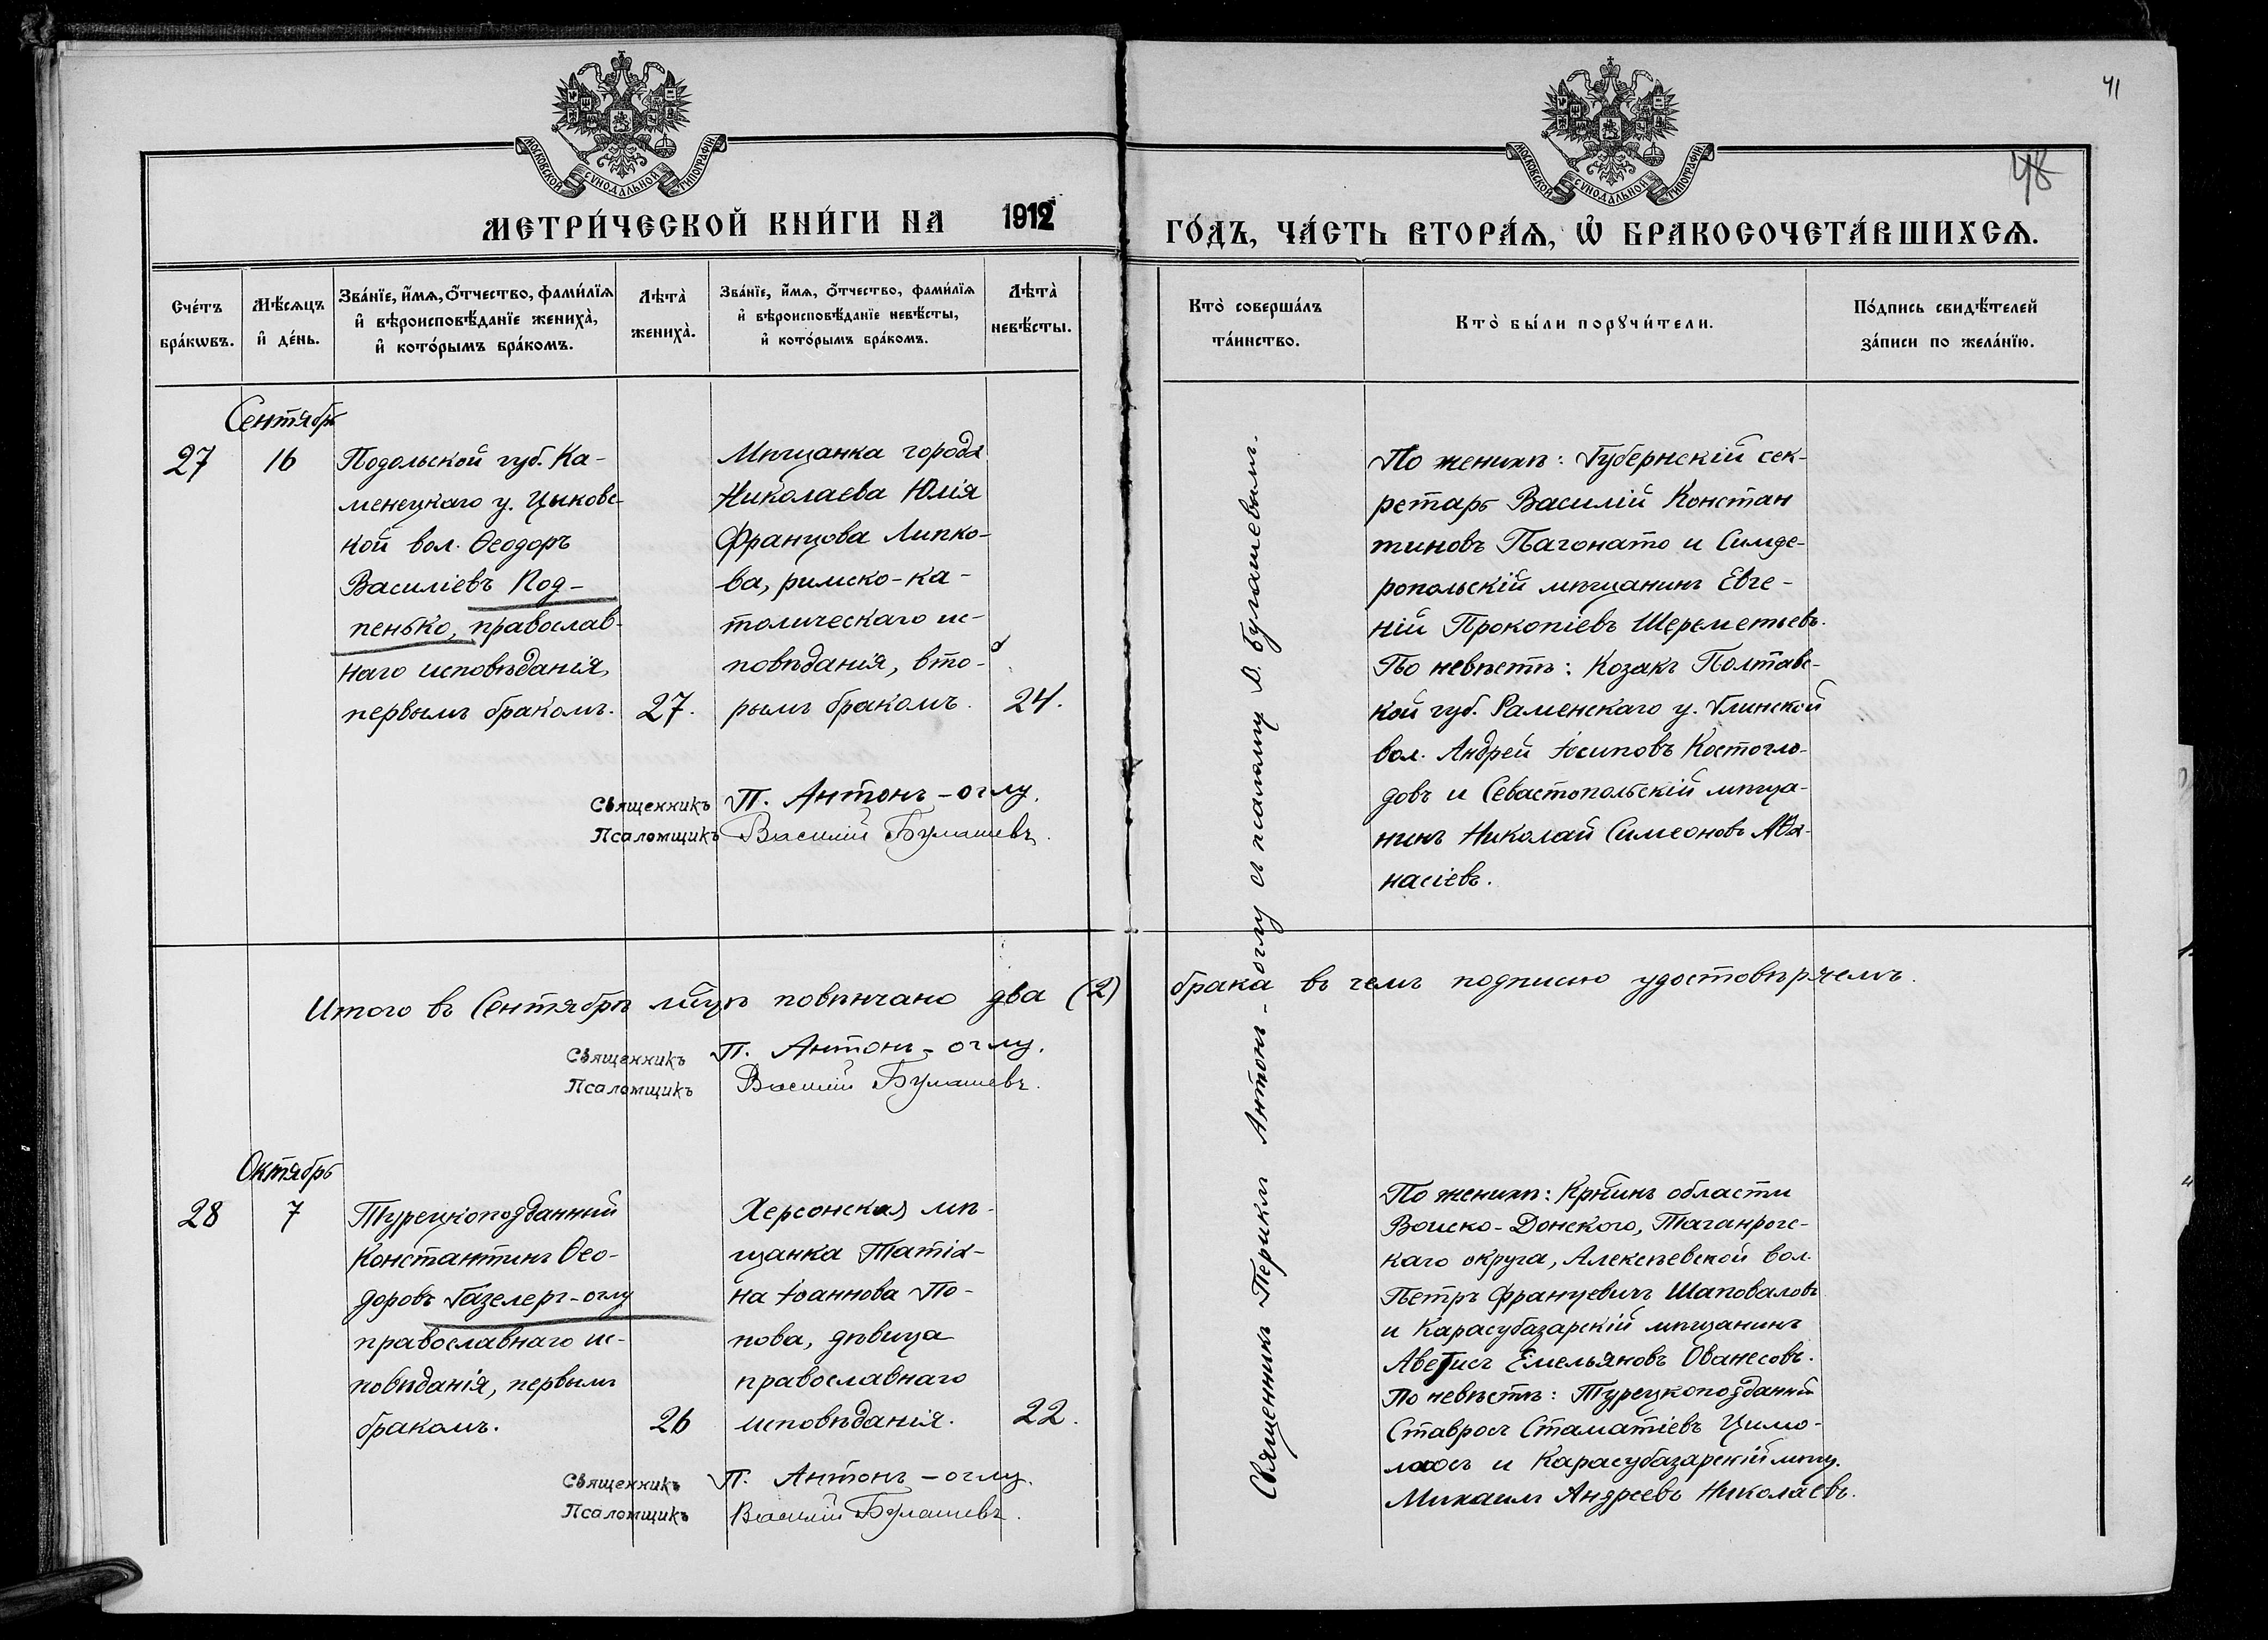 41
48
МОСКОВСКОЙ СѴНОДАЛЬНОЙ ТИПОГРАФІИ
МОСКОВСКОЙ СѴНОДАЛЬНОЙ ТИПОГРАФІИ
МЕТРИ́ЧЕСКОЙ КНИ́ГИ НА 1912 ГО́ДЪ, ЧА́СТЬ ВТОРА́Ѧ, Ѡ҆ БРАКОСОЧЕТА́ВШИХСѦ.
Сче́тъ бра́кѡвъ.
Мѣ́сѧцъ и҆ де́нь.
Зва́нїе, и҆́мѧ, ѻ҆́тчество, фами́лїѧ и҆ вѣроисповѣ́данїе жениха̀, и҆ кото́рымъ бра́комъ.
Лѣта̀ жениха̀.
Зва́нїе, и҆́мѧ, ѻ҆́тчество, фами́лїѧ и҆ вѣроисповѣ́данїе невѣ́сты, и҆ кото́рымъ бра́комъ.
Лѣта̀ невѣ́сты.
Кто̀ соверша́лъ та́инство.
Кто̀ бы́ли порꙋчи́тели.
По́дпись свидѣ́телей за́писи по жела́нїю.
Сентябрь
27
16
Подольской губ. Ка-
менецкаго у. Цыковс-
кой вол. Ѳеодоръ
Василіевъ Под-
пенько, православ-
наго исповѣданія,
первымъ бракомъ.
27.
Мѣщанка города
Николаева Юлія
Францова Липко-
ва, римско-ка-
толическаго ис-
повѣданія, вто-
рымъ бракомъ.
24.
Священникъ П. Антонъ-оглу.
Псаломщикъ Василій Булашевъ.
По женихѣ: Губернскій сек-
ретарь Василій Констан
тиновъ Пагонато и Симфе-
ропольскій мѣщанинъ Евге-
ній Прокопіевъ Шереметьевъ.
По невѣстѣ: Козакъ Полтавс-
кой губ. Раменскаго у. Глинской
вол. Андрей Іосиповъ Костогло-
довъ и Севастопольскій мѣща-
нинъ Николай Симеоновъ Аѳа-
насіевъ.
Священникъ Периклъ Антонъ-оглу съ псаломщ. В. Булашевымъ.
Итого въ Сентябрѣ мѣцѣ повѣнчано два (2) брака въ чемъ подписью удостовѣряемъ.
Священникъ П. Антонъ-оглу.
Псаломщикъ Василій Булашевъ.
Октябрь
28
7
Турецкоподданный
Константинъ Ѳео-
доровъ Газелеръ-оглу
православнаго ис-
повѣданія, первымъ
бракомъ.
26
Херсонская мѣ-
щанка Татіа-
на Іоаннова По-
пова, дѣвица
православнаго
исповѣданія.
22.
Священникъ П. Антонъ-оглу.
Псаломщикъ Василій Булашевъ.
По женихѣ: Кр͠нинъ области
Войско-Донского, Таганрогс-
каго округа, Алексѣевской вол.
Петръ Францевичъ Шаповаловъ
и Карасубазарскій мѣщанинъ
Аветисъ Емельяновъ Ованесовъ.
По невѣстѣ: Турецкоподданный
Ставросъ Стаматіевъ Цимо-
лаосъ и Карасубазарскій мѣщ.
Михаилъ Андреевъ Николаевъ.